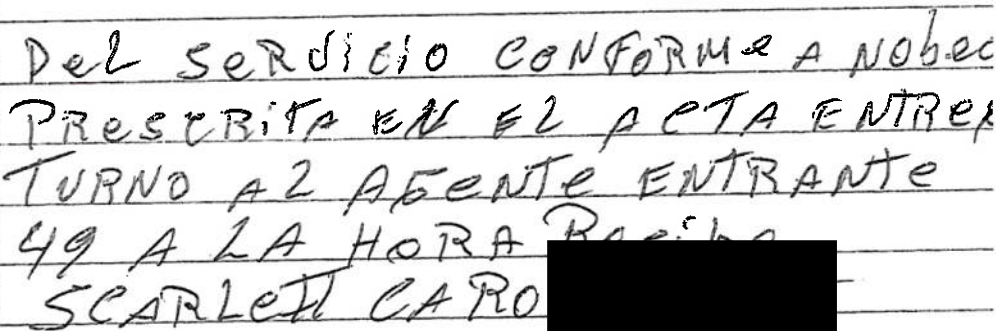 Del SERVICIO CONFORME A NObed
PRESCRITA EN EL ACTA ENTREG
TURNO AL AGENTE ENTRANTE
49 A LA HORA Recibe
SCARLETT CARO